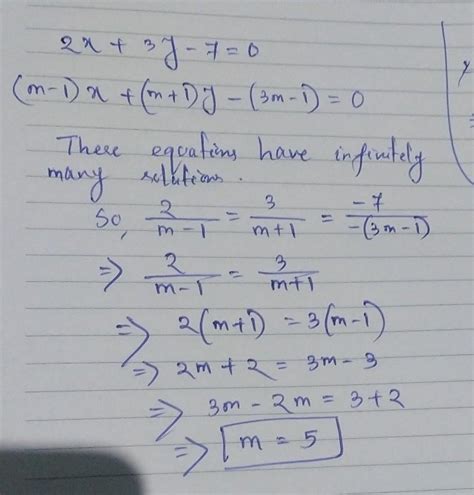 2x + 3y - 7 = 0
(m-1)x + (m+1)y - (3m-1) = 0
These equations have infinitely
many solutions.
So, 2/(m-1) = 3/(m+1) = -7/-(3m-1)
⇒ 2/(m-1) = 3/(m+1)
⇒ 2(m+1) = 3(m-1)
⇒ 2m + 2 = 3m - 3
⇒ 3m - 2m = 3 + 2
⇒ m = 5